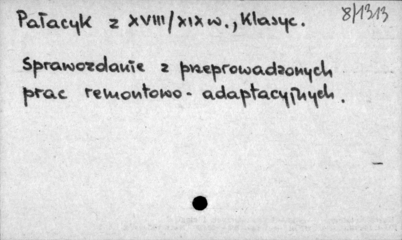 Pałacyk z XVIII/XIX w., klasyc. 8/1313
Sprawozdanie z przeprowadzonych
prac remontowo- adaptacyjnych.